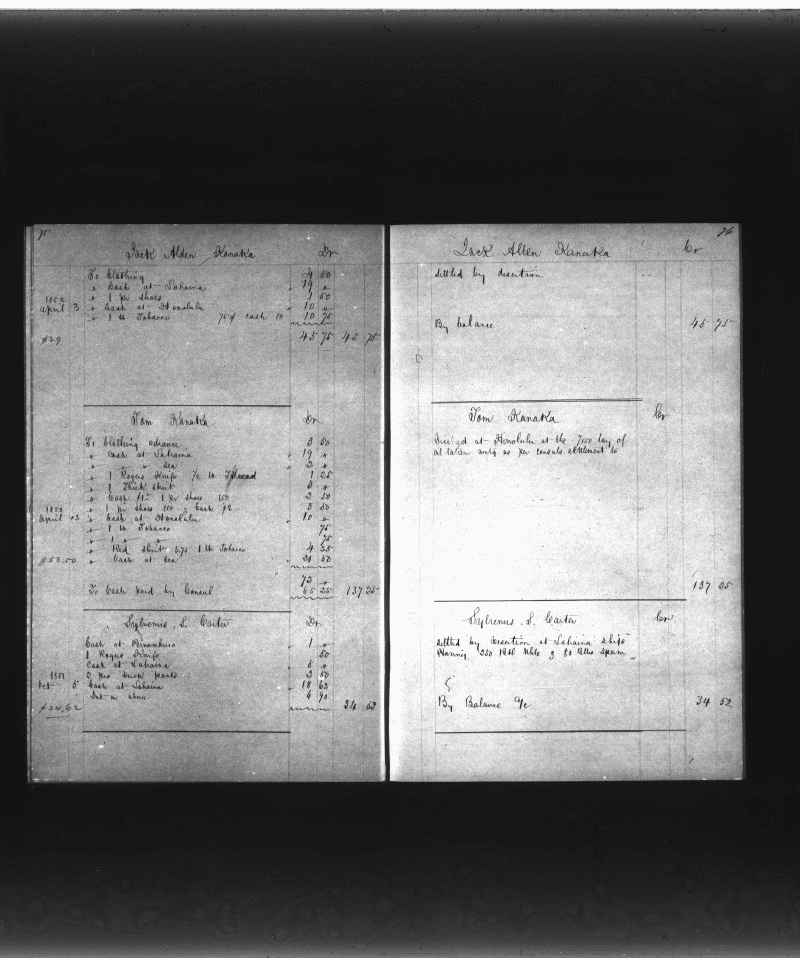 75
Jack Alden Kanaka Dr
To Clothing 4 50
" Cash at Lahaina 19 "
1852 " 1 pr shoes 1 50
April 3 " Cash at Honolulu 10 "
" 1 lb Tobacco 75¢ Cash 10 10 75
$29 45 75 45 75
Tom Kanaka Dr
To Clothing advance 3 50
" Cash at Lahaina 19 "
" " " sea 2 "
" 1 Rogers Knife Thread 1 25
" 1 Thick shirt 3 "
" Cash 1 pr shoes 150 2 50
1852 " 1 pr shoes Cash $2 3 50
April 3 " Cash at Honolulu 10 "
" 1 lb Tobacco 75
" 1 " " 75
" Red shirt 1 lb Tobacco 4
$53.50 " Cash at sea 21 50
72 "
To Cash paid by Consul 65 25 137 25
Sylvenus S. Carter Dr
Cash at Pernambuco 1 "
1 Rogers Knife 50
Cash at Lahaina 5 "
2 prs Duck pants 2 50
Oct 5 Cash at Lahaina 18 62
Int on above 6 90
$24,62 34 52
76
Jack Alden Kanaka Cr
settled by desertion
By balance 45 75
Tom Kanaka Cr
at Honolulu at the lay of
oil taken as per consuls settlement to
137 25
Sylvenus S. Carter Cr
settled by desertion at Lahaina Ships
Whle & 80 Blls Sperm
By Balance 34 52